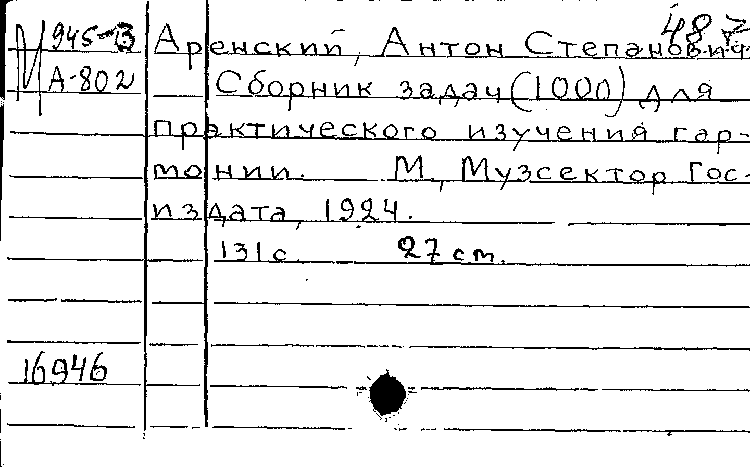 487
И 945-В
А-802
Аренский, Антон Степанович
Сборник задач (1000) для
практического изучения гар-
монии. М., Музсектор Гос-
издата, 1924.
131 с. 27 cm.
16946